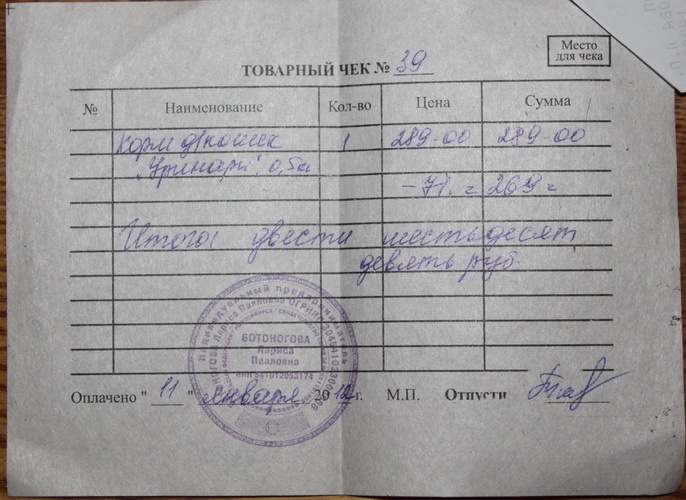 Место
для чека
ТОВАРНЫЙ ЧЕК № 39
№ Наименование Кол-во Цена Сумма
Корм д/кошек 1 289-00 289-00
"Уринари", 0,5к
-7%. = 269=
Итого: двести шестьдесят
девять руб.
Индивидуальный предприниматель
БОТОНОГОВА
Лариса
Павловна
Оплачено "11" января 2012 г. М.П. Отпусти